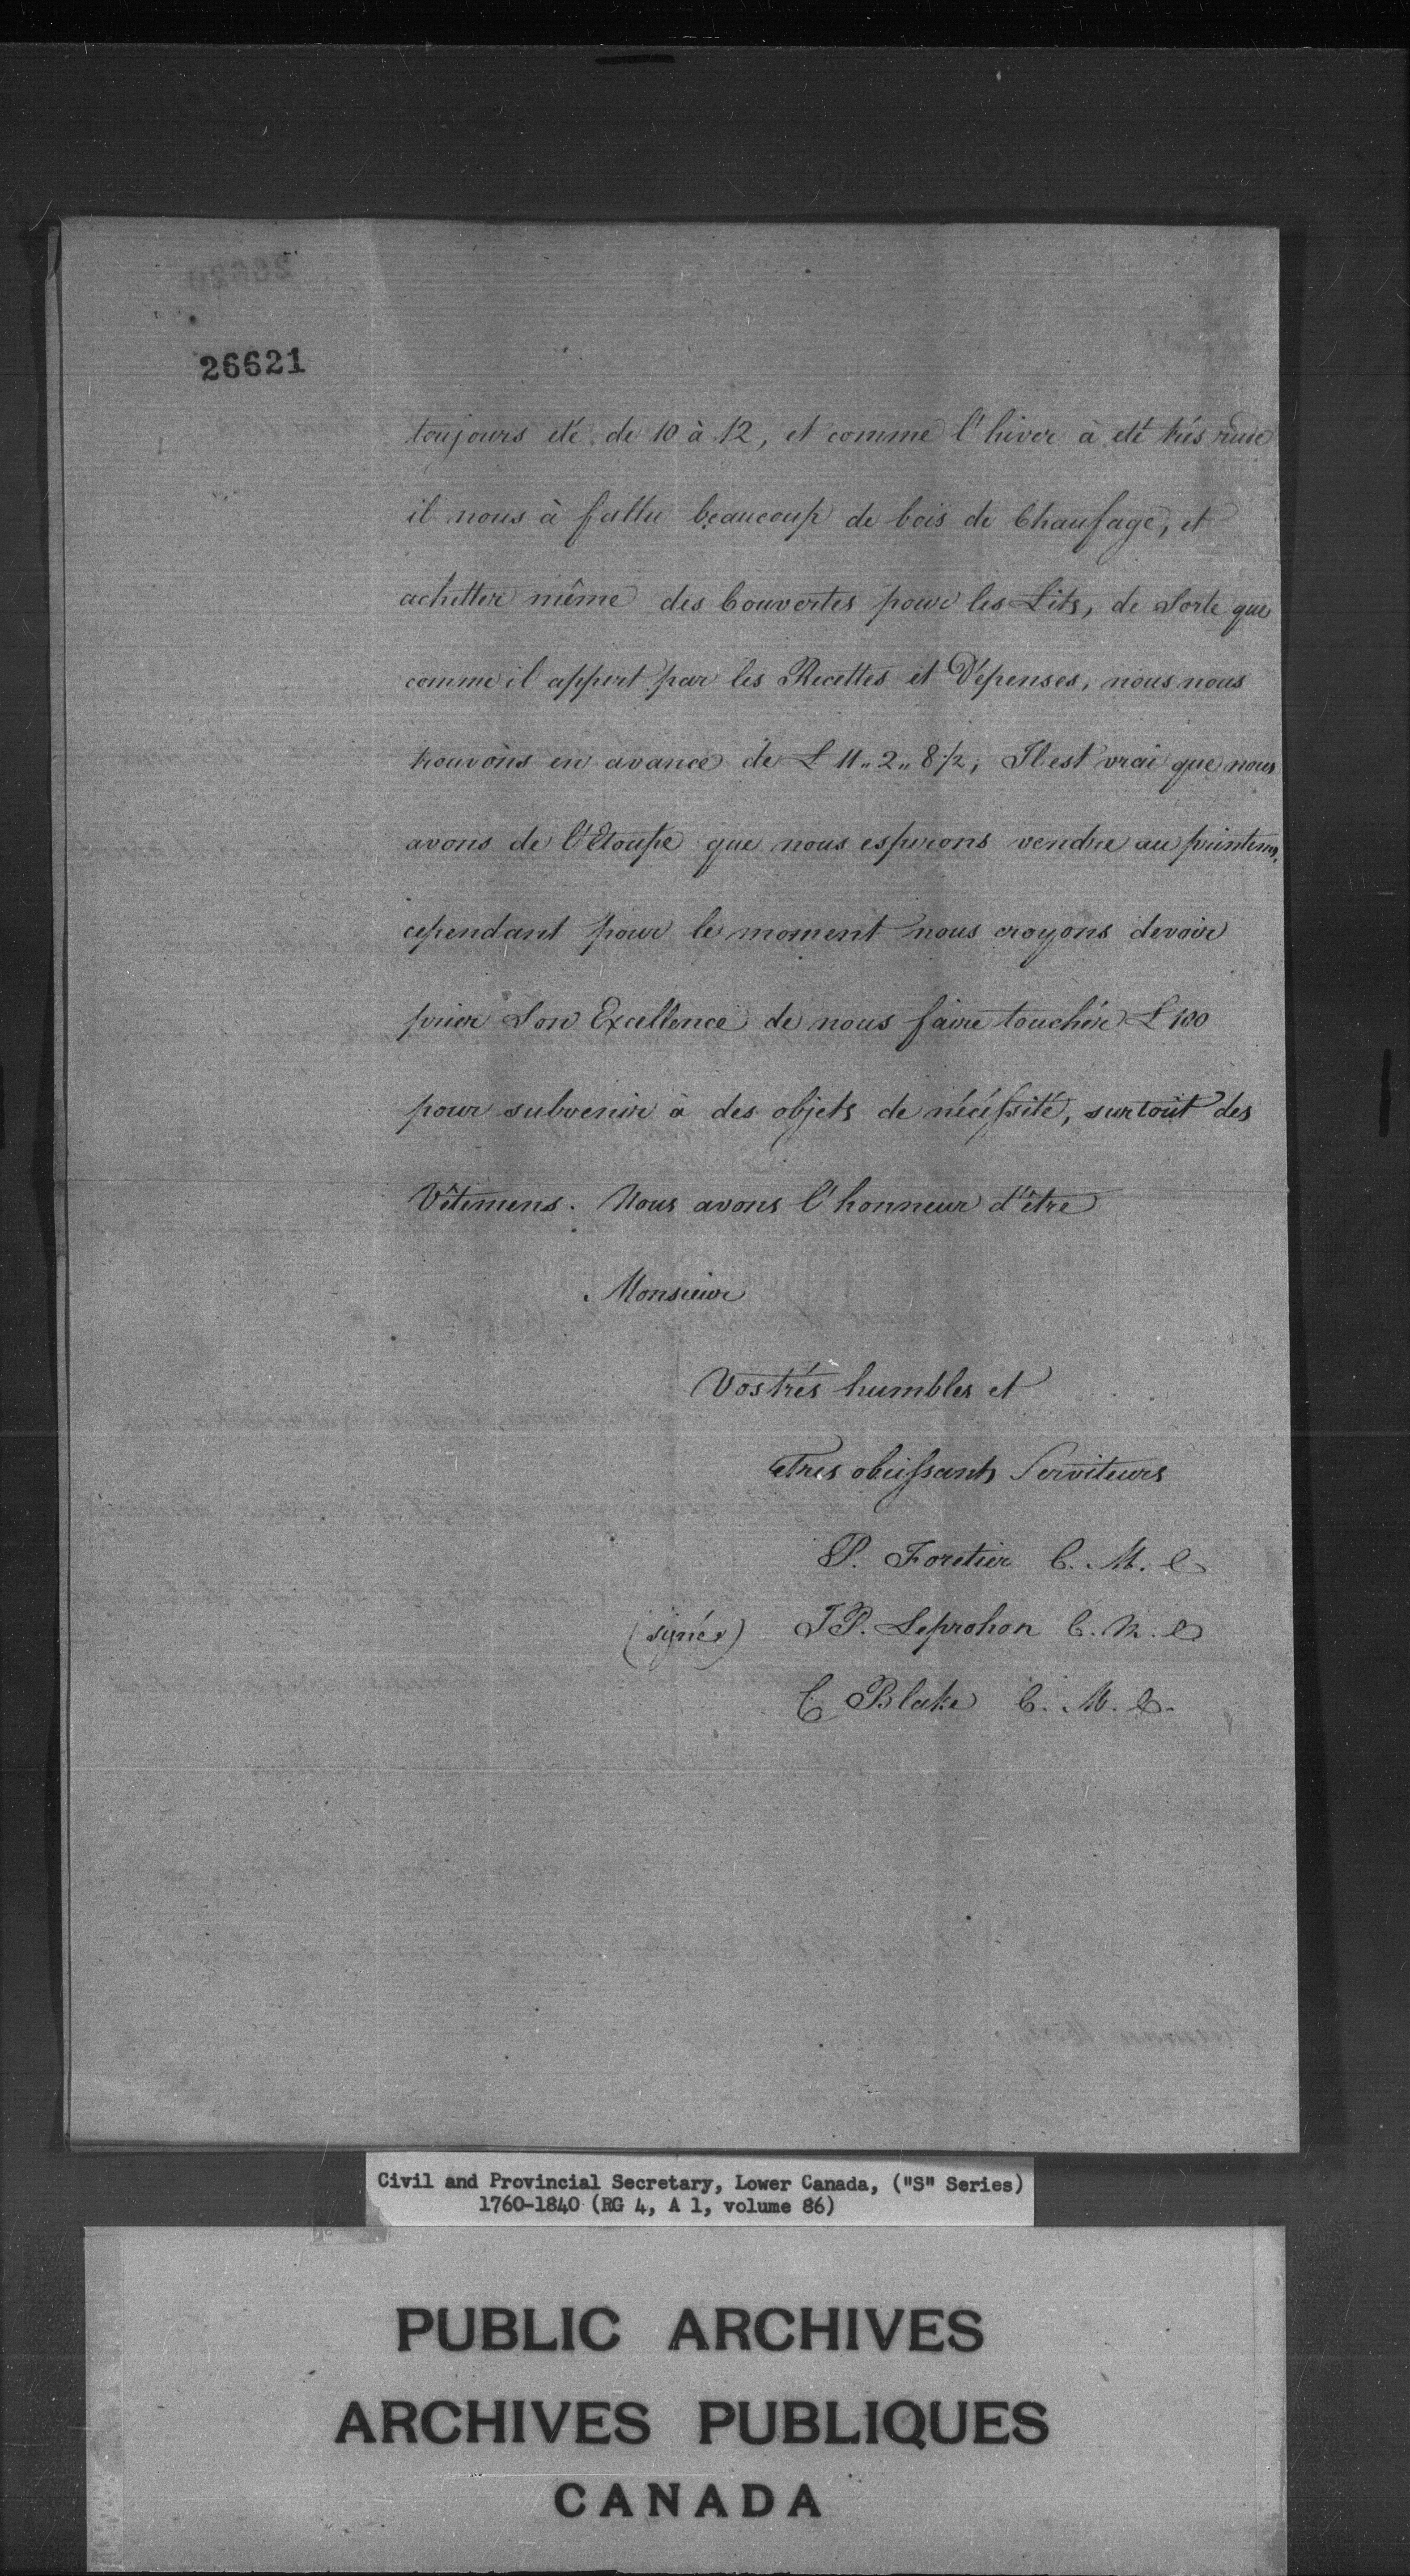 26621
toujours été de 10 à 12, et comme l'hiver à eté trés rude
il nous à fallu beaucoup de bois de Chaufage, et
achetter même des Couvertes pour les Lits, de Sorte que
comme il appert par les Recettes et Dépenses, nous nous
trouvons en avance de £ 11„2„8½; Il est vrai que nous
avons de l'Etoupe que nous esperons vendre au printems,
cependant pour le moment nous croyons devoir
prier Son Excellence de nous faire touchér £100
pour subvenir à des objets de nécéssité, surtout des
Vêtemens. Nous avons l'honneur d'être
Monsieur
Vos trés humbles et
tres obeissants Serviteurs
P. Foretier C. M. C
(signés) J P. Leprohon C. M. C
C Blake C. M. C.
Civil and Provincial Secretary, Lower Canada, ("S" Series)
1760-1840 (RG 4, A 1, volume 86)
PUBLIC ARCHIVES
ARCHIVES PUBLIQUES
CANADA